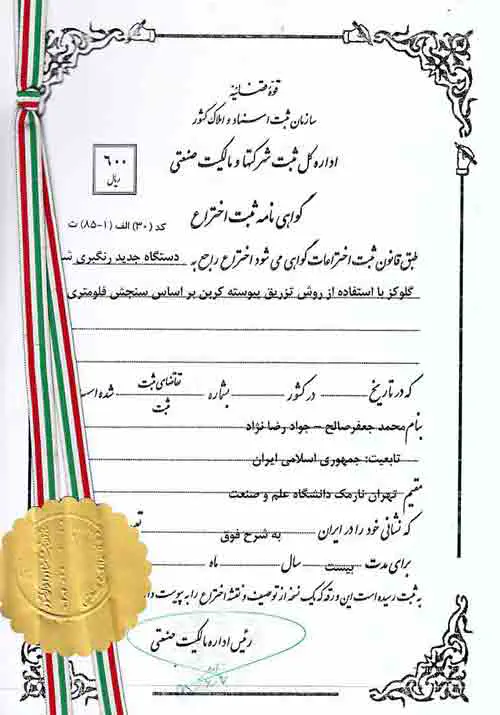 قوهٔ قضائیه
سازمان ثبت اسناد و املاک کشور
اداره کل ثبت شرکتها و مالکیت صنعتی
۶۰۰
ریال
گواهی نامه ثبت اختراع
کد (۳۰) الف (۱-۸۵) ت
طبق قانون ثبت اختراعات گواهی می شود اختراع راجع به دستگاه جدید رنگبری
گلوکز با استفاده از روش تزریق پیوسته کربن بر اساس سنجش فلومتری
که در تاریخ در کشور بشماره تقاضای ثبت
ثبت
شده است
بنام محمد جعفرصالح – جواد رضا نژاد
تابعیت: جمهوری اسلامی ایران
مقیم تهران نارمک دانشگاه علم و صنعت
که نشانی خود را در ایران به شرح فوق
برای مدت بیست سال ماه
به ثبت رسیده است این ورقه که یک نسخه از توصیف و نقشه اختراع را به پیوست
رئیس اداره مالکیت صنعتی